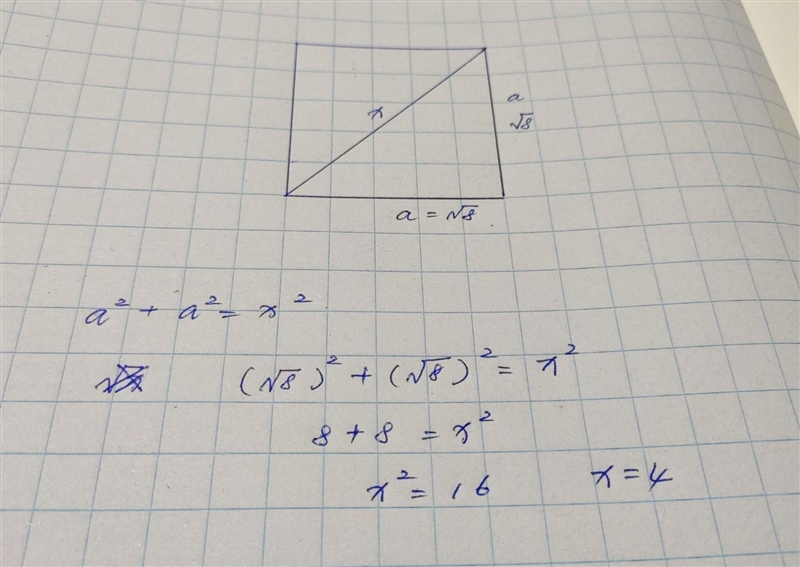 x
a
√8
a = √8.
a² + a² = x²
(√8)² + (√8)² = x²
8 + 8 = x²
x² = 16 x = 4